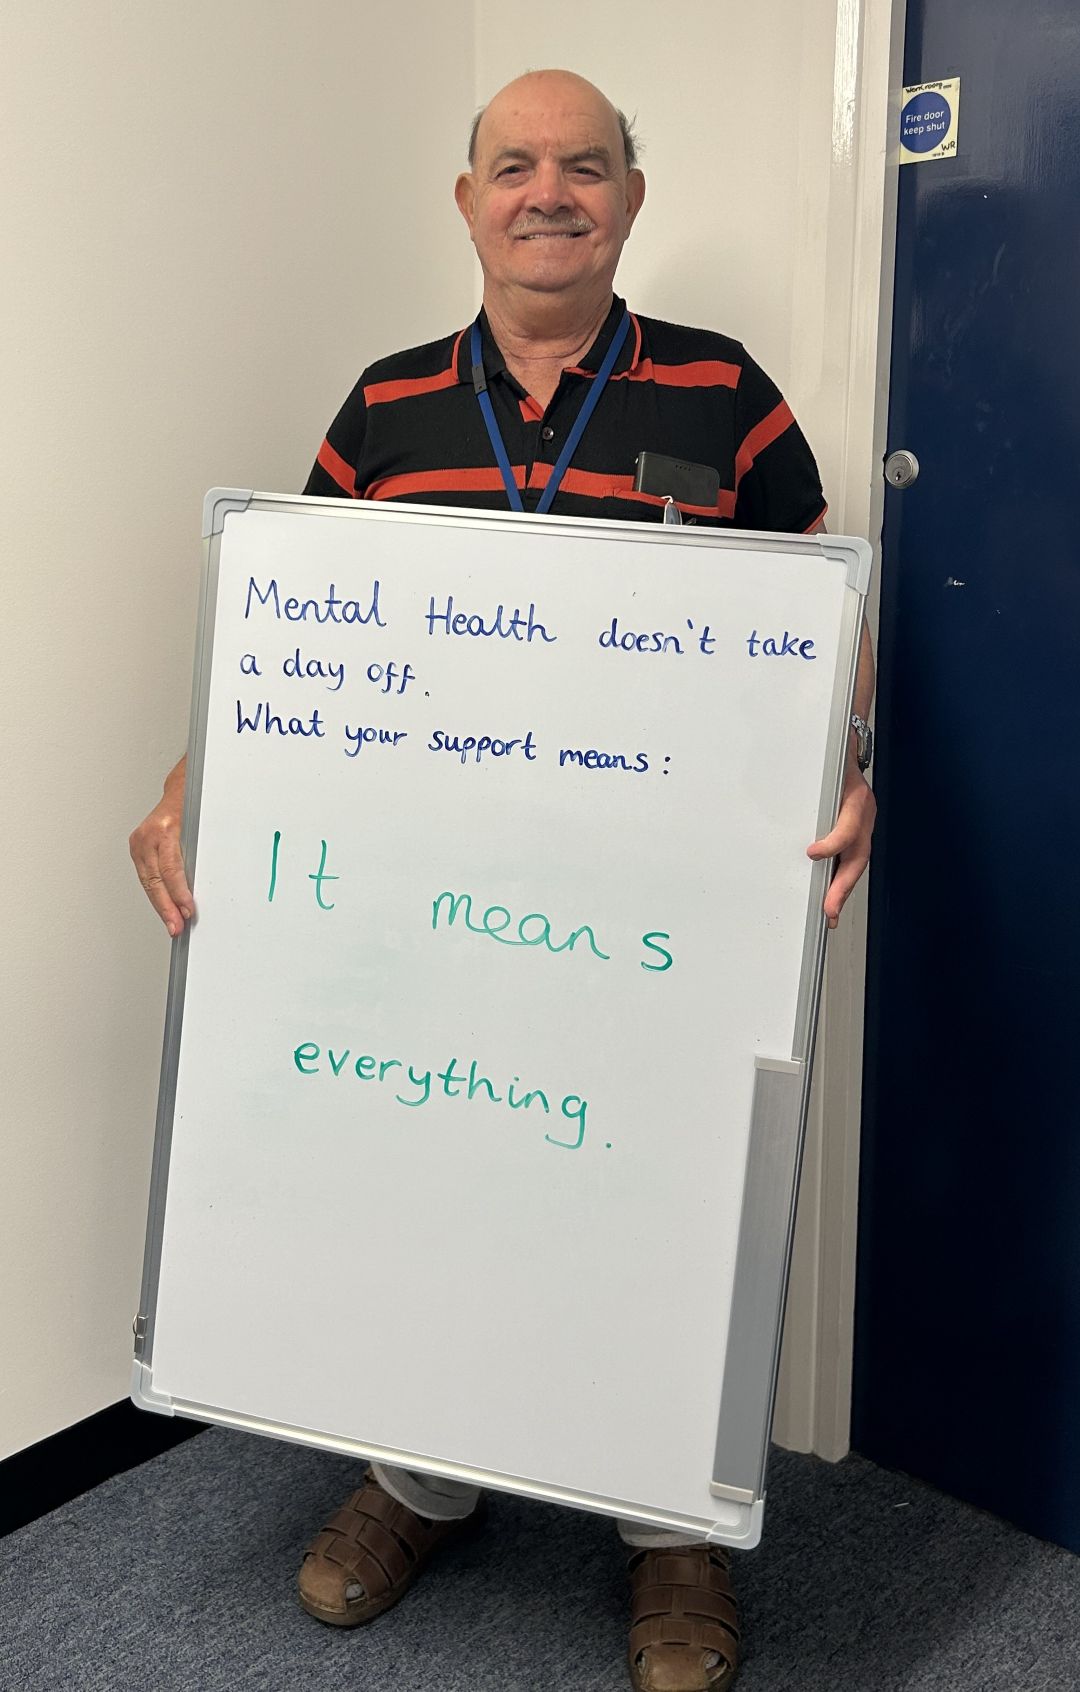 Mental Health doesn't take
a day off.
What your support means:
It means
everything.
Fire door
keep shut
WR